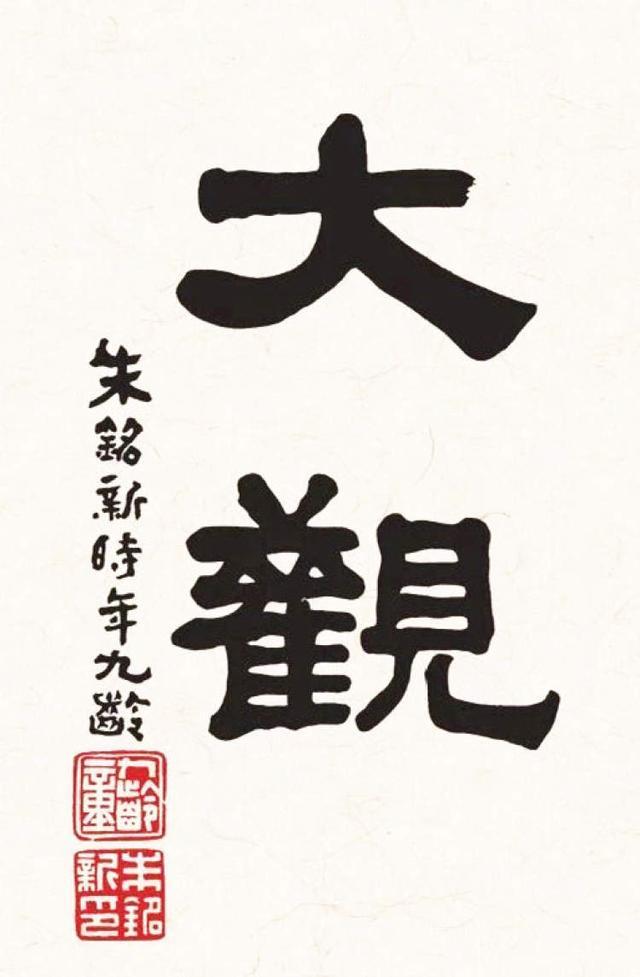 大觀
朱銘新時年九齡
九齡童
朱銘新印